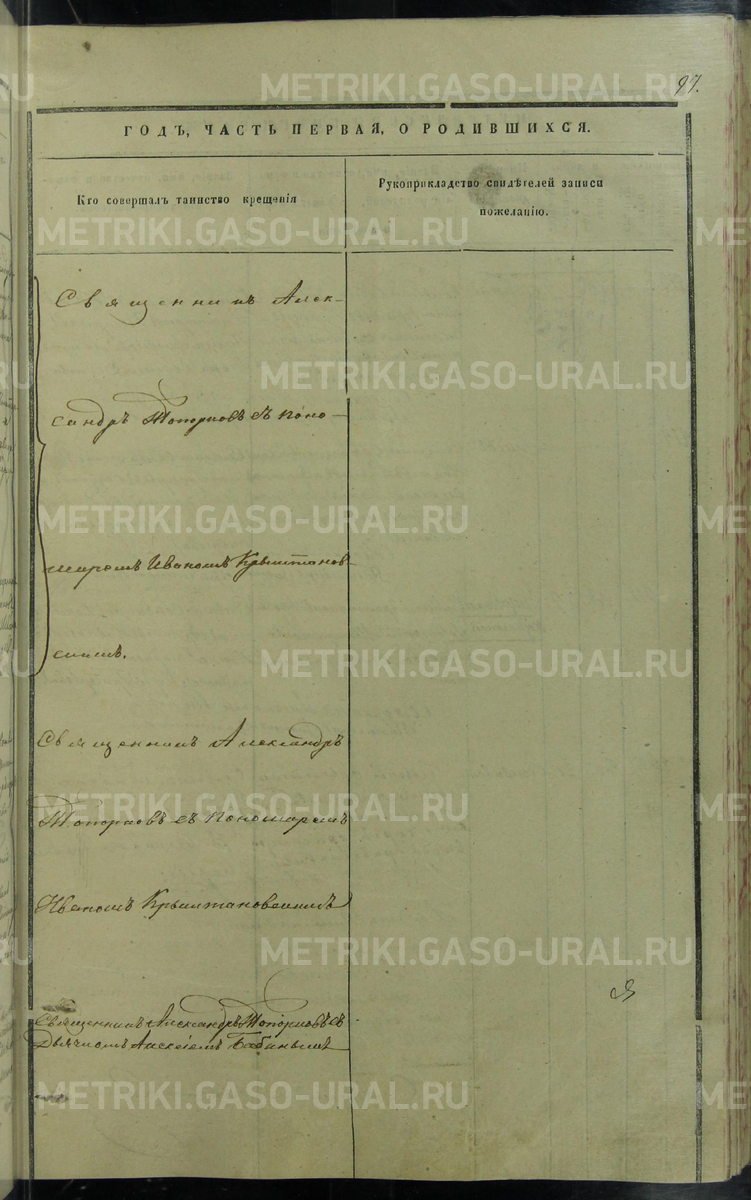 97.
ГОДЪ, ЧАСТЬ ПЕРВАЯ, О РОДИВШИХСЯ.
Кто совершалъ таинство крещенія
Рукоприкладство свидѣтелей записи
пожеланію.
Священникъ Алек-
сандръ Топорковъ съ поно-
маремъ Иваномъ Крыжтанов-
скимъ.
Священникъ Александръ
Топорковъ съ пономаремъ
Иваномъ Крыжтановскимъ
Священникъ Александръ Топорковъ съ
Дьячкомъ Алексіемъ Бабинымъ
METRIKI.GASO-URAL.RU